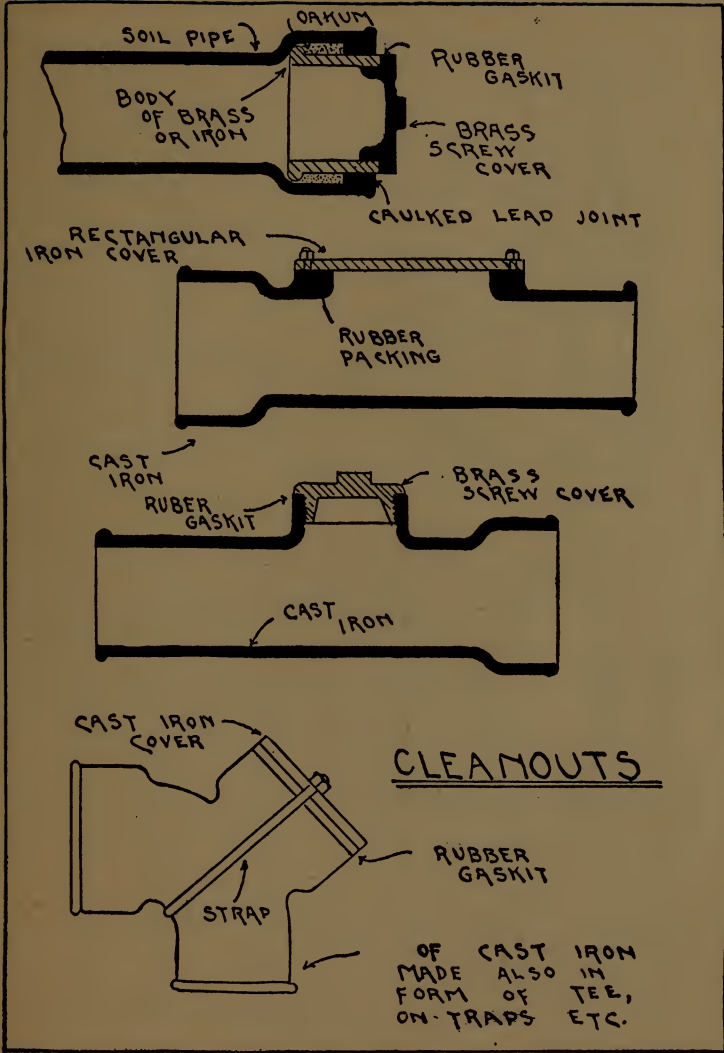 OAKUM
SOIL PIPE
RUBBER
GASKIT
BODY
OF BRASS
OR IRON
BRASS
SCREW
COVER
CAULKED LEAD JOINT
RECTANGULAR
IRON COVER
RUBBER
PACKING
CAST
IRON
BRASS
SCREW COVER
RUBER
GASKIT
CAST
IRON
CAST IRON
COVER
CLEANOUTS
RUBBER
GASKIT
STRAP
OF CAST IRON
MADE ALSO IN
FORM OF TEE,
ON-TRAPS ETC.